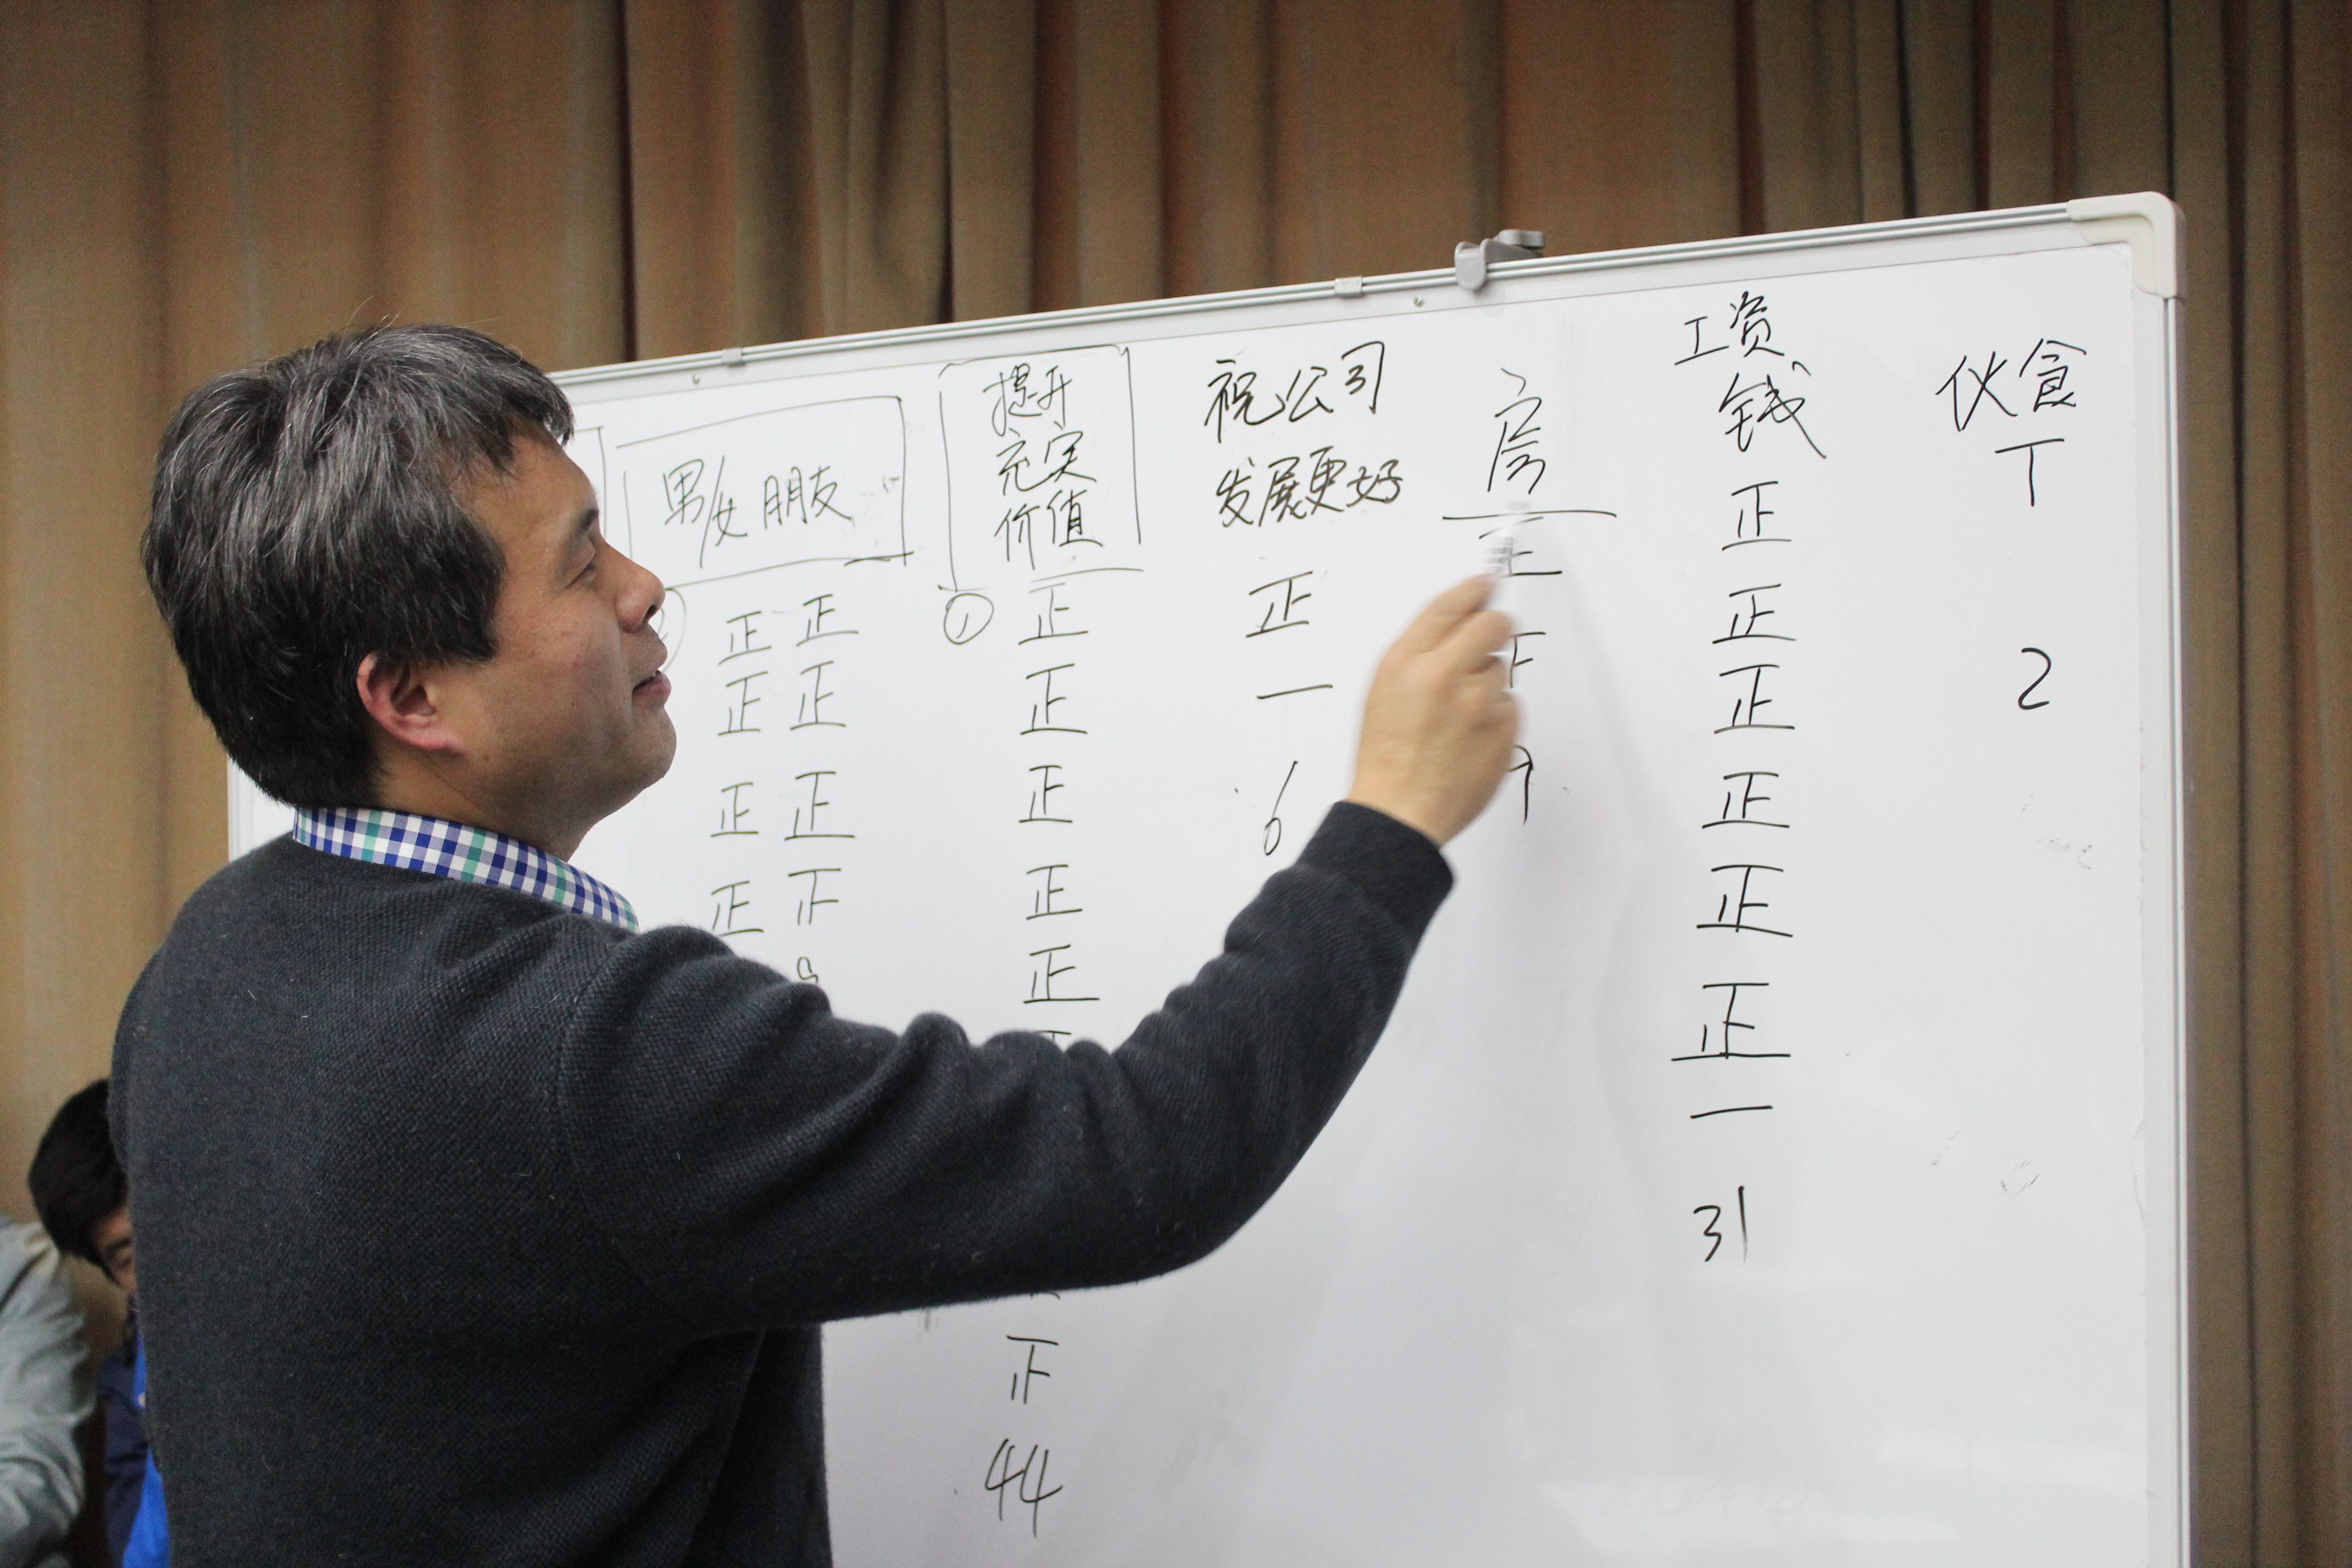 男/女朋友
正 正
正 正
正 正
正 𤴓
提升
充实
价值
①
正
正
正
正
正
𤴓
44
祝公司
发展更好
正
一
6
房
正
9
工资
钱
正
正
正
正
正
正
一
31
伙食
丅
2